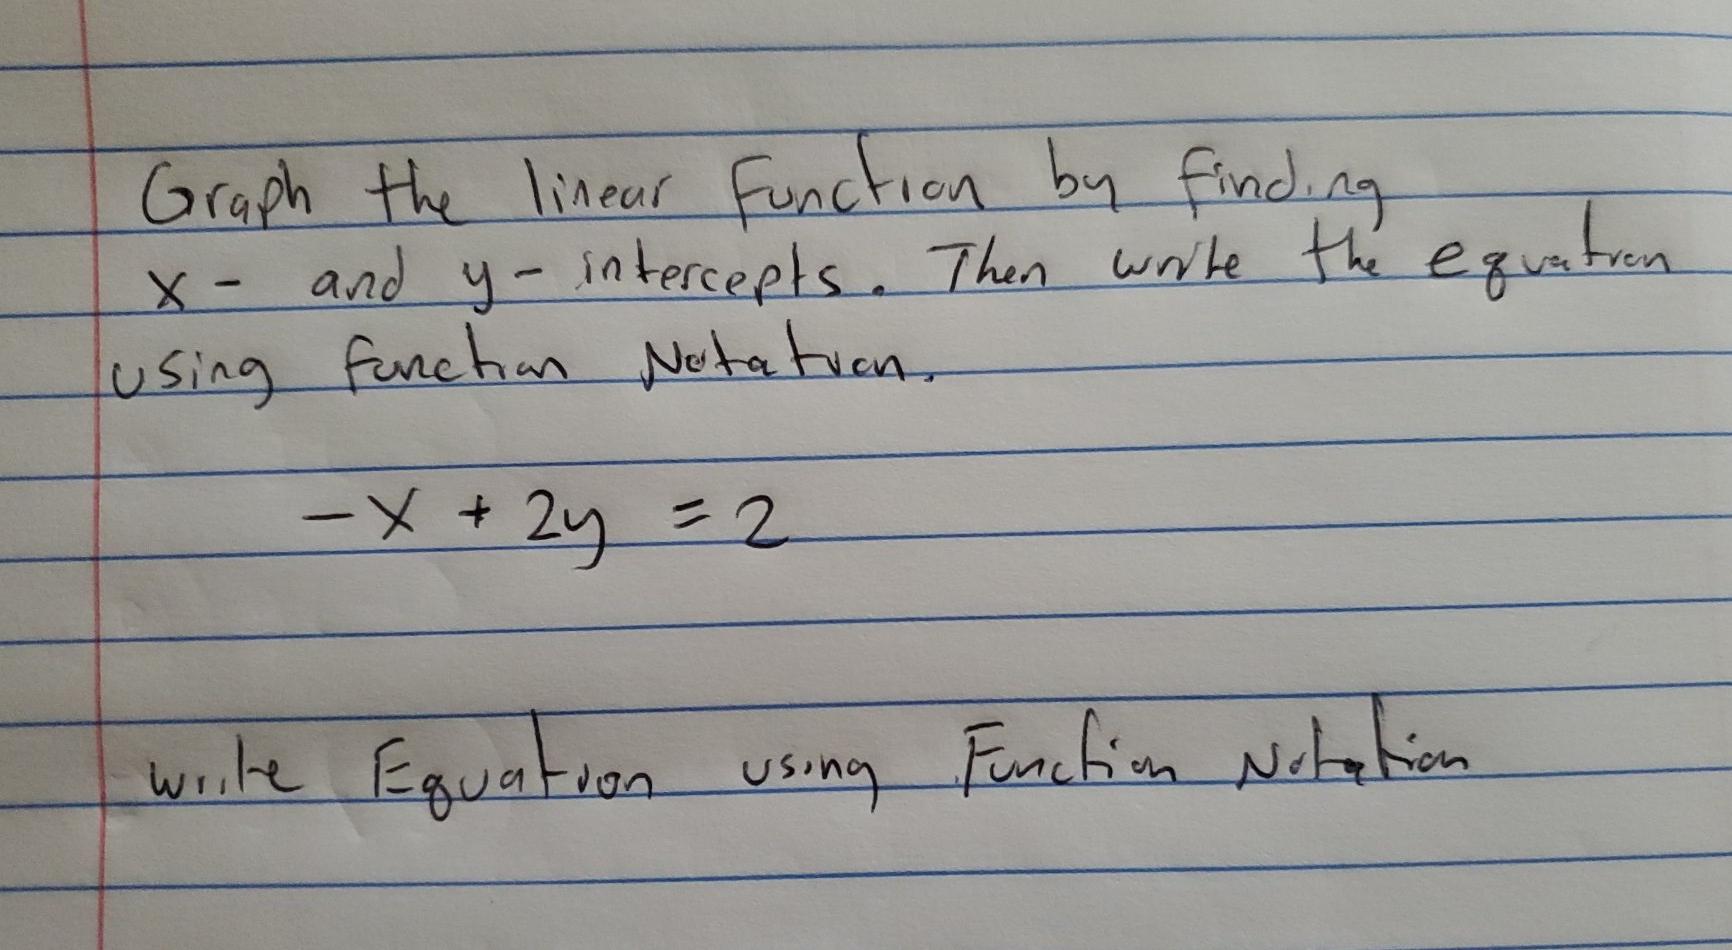 Graph the linear Function by finding
x- and y-intercepts. Then write the equation
using function Notation.
-x + 2y = 2
write Equation using Function Notation